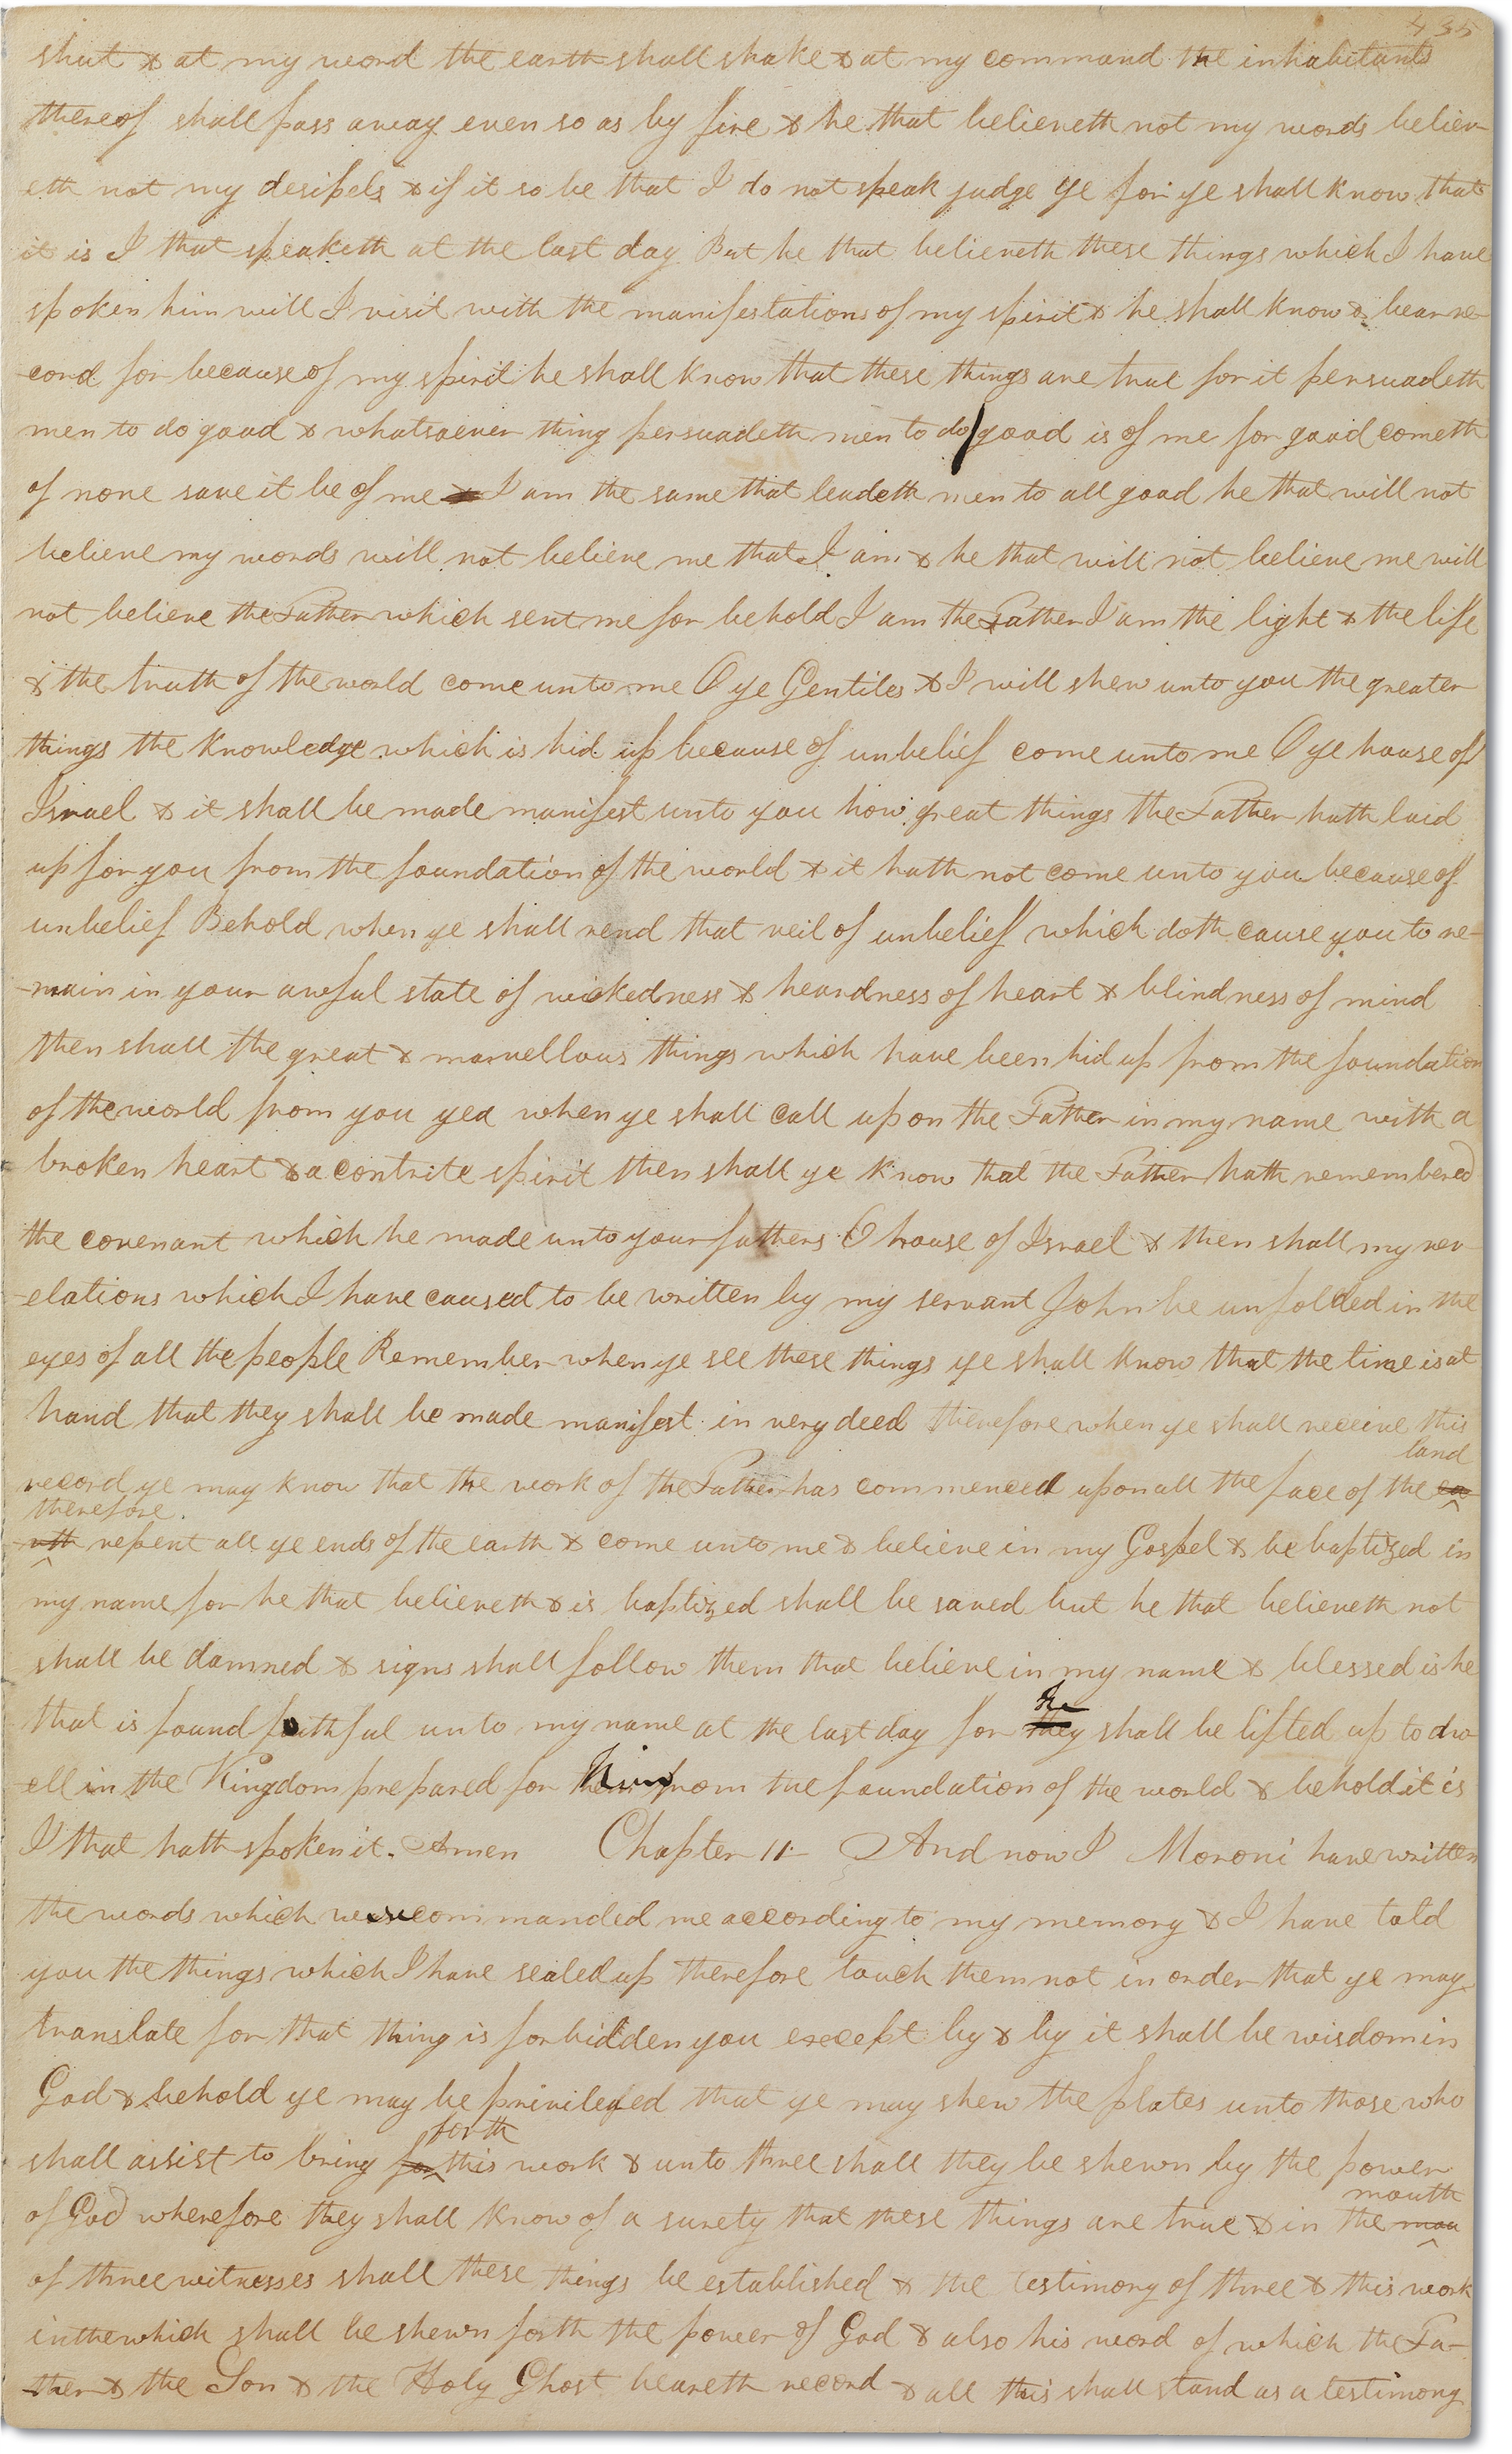 435
shut & at my word the earth shall shake & at my command the inhabitants
thereof shall pass away even so as by fire & he that believeth not my words believ-
eth not my desipels & if it so be that I do not speak judge ye for ye shall know that
it is I that speaketh at the last day But he that believeth these things which I have
spoken him will I visit with the manifestations of my spirit & he shall know & bear re-
cord for because of my spirit he shall know that these things are true for it persuadeth
men to do good & whatsoever thing persuadeth men to do good is of me for good cometh
of none save it be of me & I am the same that leadeth men to all good he that will not
believe my words will not believe me that I am & he that will not believe me will
not believe the Father which sent me for behold I am the Father I am the light & the life
& the truth of the world come unto me O ye Gentiles & I will shew unto you the greater
things the knowledge which is hid up because of unbelief come unto me O ye house of
Israel & it shall be made manifest unto you how great things the Father hath laid
up for you from the foundation of the world & it hath not come unto you because of
unbelief Behold when ye shall rend that veil of unbelief which doth cause you to re-
-main in your awful state of wickedness & heardness of heart & blindness of mind
then shall the great & marvellous things which have been hid up from the foundation
of the world from you yea when ye shall call upon the Father in my name with a
broken heart & a contrite spirit then shall ye know that the Father hath remembered
the covenant which he made unto your fathers O house of Israel & then shall my rev-
-elations which I have caused to be written by my servant John be unfolded in the
eyes of all the people Remember when ye see these things ye shall know that the time is at
hand that they shall be made manifest in very deed therefore when ye shall receive this
land
record ye may know that the work of the Father has commenced upon all the face of the ea
therefore.
-rth repent all ye ends of the earth & come unto me & believe in my Gospel & be baptized in
my name for he that believeth & is baptized shall be saved but he that believeth not
shall be damned & signs shall follow them that believe in my name & blessed is he
he
that is found faithful unto my name at the last day for they shall be lifted up to dw
-ell in the Kingdom prepared for him from the foundation of the world & behold it is
I that hath spoken it. Amen Chapter 11- And now I Moroni have written
the words which were commanded me according to my memory & I have told
you the things which I have sealed up therefore touch them not in order that ye may
translate for that thing is forbidden you except by & by it shall be wisdom in
God & behold ye may be privileged that ye may shew the plates unto those who
forth
shall assist to bring for this work & unto three shall they be shewn by the power
mouth
of God wherefore they shall know of a surety that these things are true & in the mou
of three witnesses shall these things be established & the testimony of three & this work
in the which shall be shewn forth the power of God & also his word of which the Fa-
-ther & the Son & the Holy Ghost beareth record & all this shall stand as a testimony